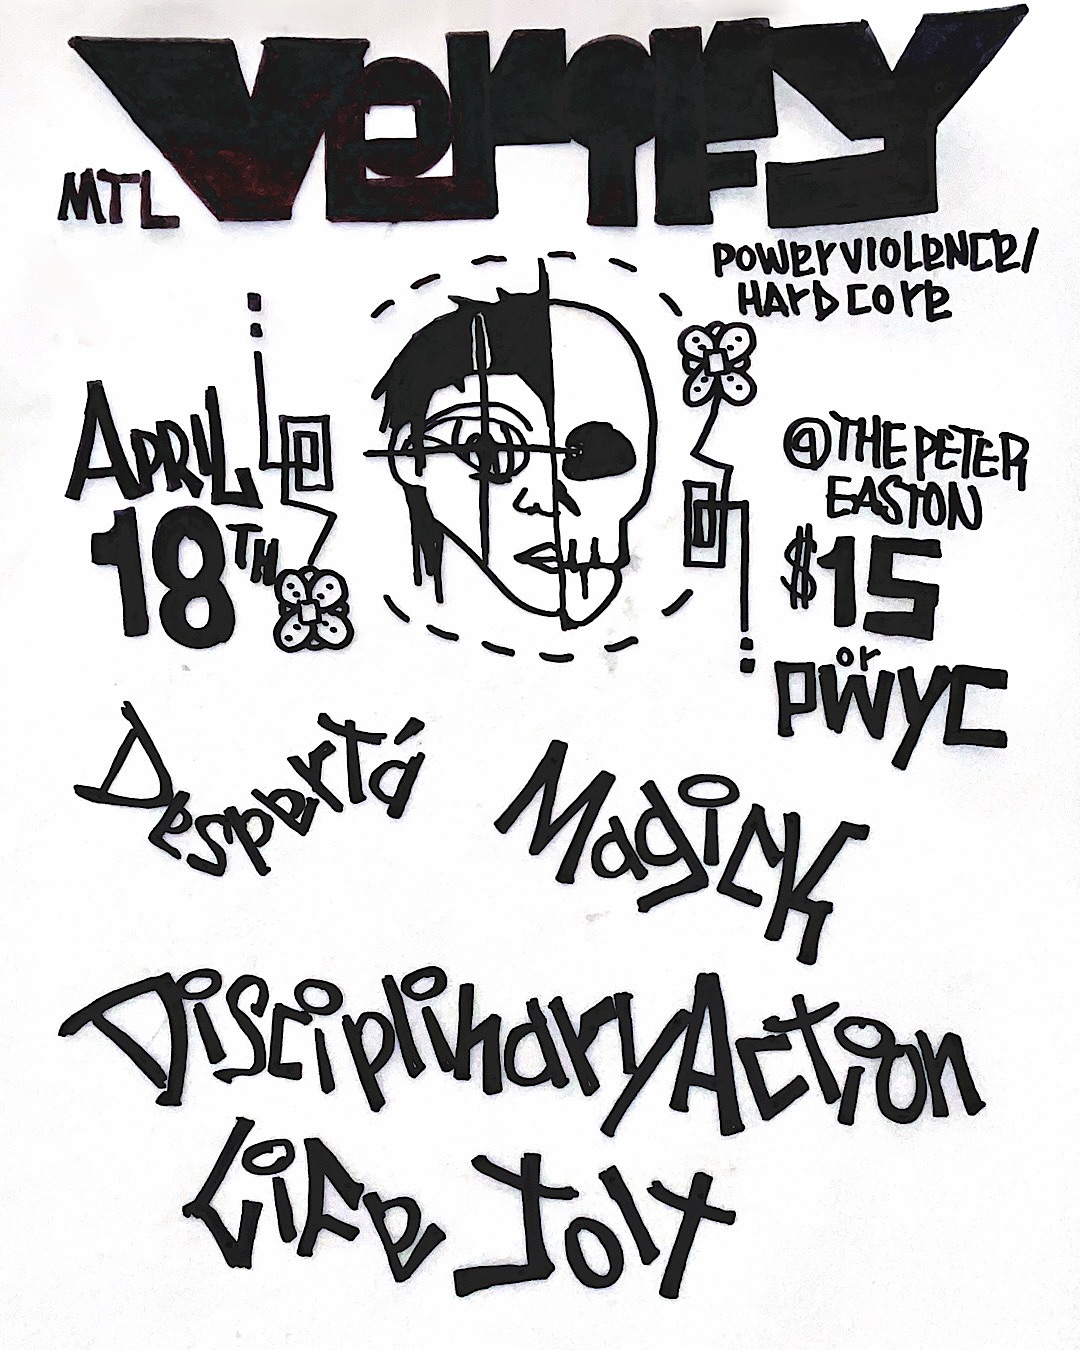 MTL
POWerVIOLeNCe/
HArDCOre
APRIL
18TH
@THE PETER
EASTON
$15
or
PWYC
Despertá
Magick
Disciplinary Action
Life Jolt